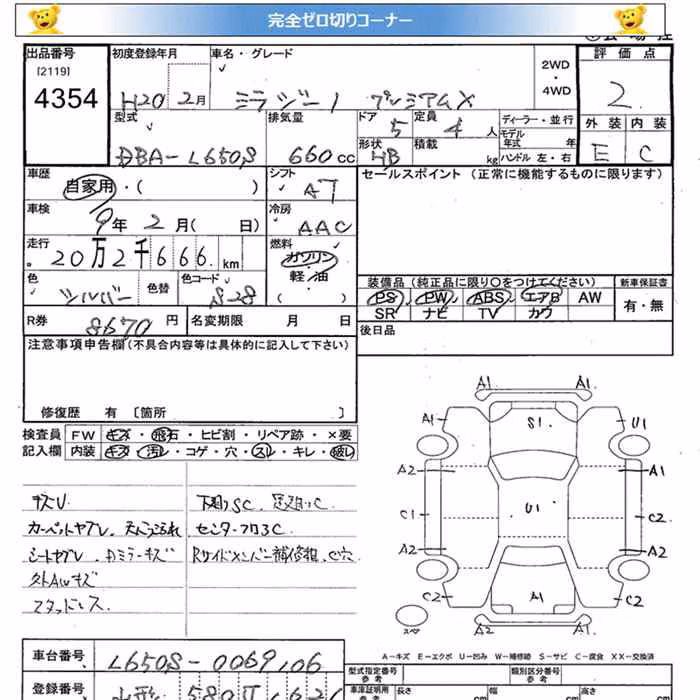 完全ゼロ切りコーナー
出品番号 初度登録年月 車名・グレード 2WD・4WD 評価点
[2119]
4354 H20 2月 ミラジーノ プレミアムX 2
型式 排気量 ドア 5 定員 4人 ディーラー・並行 外装 内装
モデル年式 年
DBA-L650S 660cc 形状 HB 積載 kg ハンドル 左・右 E C
車歴 シフト セールスポイント (正常に機能するものに限ります)
自家用・( ) AT
車検 冷房
9年2月( 日) AAC
走行 燃料
20万2千666km ガソリン・軽油
色 色替 色コード ( ) 装備品(純正品に限り○をつけてください) 新車保証書
シルバー S28 PS PW ABS エアB AW 有・無
SR ナビ TV カワ
R券 8670円 名変期限 月 日 後日品
注意事項申告欄(不具合内容等は具体的に記入して下さい)
修復歴 有 [箇所 ]
検査員 FW キズ・飛石・ヒビ割・リペア跡・×要
記入欄 内装 キズ・汚レ・コゲ・穴・スレ・キレ・破レ
キズU 下廻りSC
センターフロアC
シートヤブレ
外AWキズ
スタッドレス
A1 A1
A1 S1 U1
A2 A1
C1 U1 C2
A2 A2
C2 A1 C2
スペア A2 A1
A−キズ E−エクボ U−凹み W−補修跡 S−サビ C−腐食 XX−交換済
車台番号 L650S-0069106 型式指定番号 参考 類別区分番号 参考
登録番号 山形 580 車庫証明用 参考 長さ cm 幅 cm 高さ cm